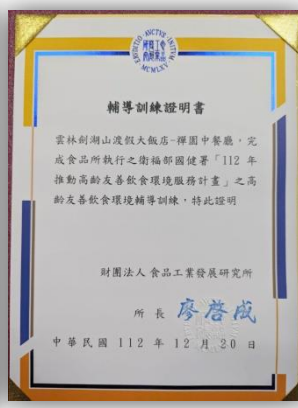 輔導訓練證明書
雲林劍湖山渡假大飯店-禪園中餐廳，完
成食品所執行之衛福部國健署「112 年
推動高齡友善飲食環境服務計畫」之高
齡友善飲食環境輔導訓練，特此證明
財團法人 食品工業發展研究所
所 長 廖啓成
中 華 民 國 112 年 12 月 20 日